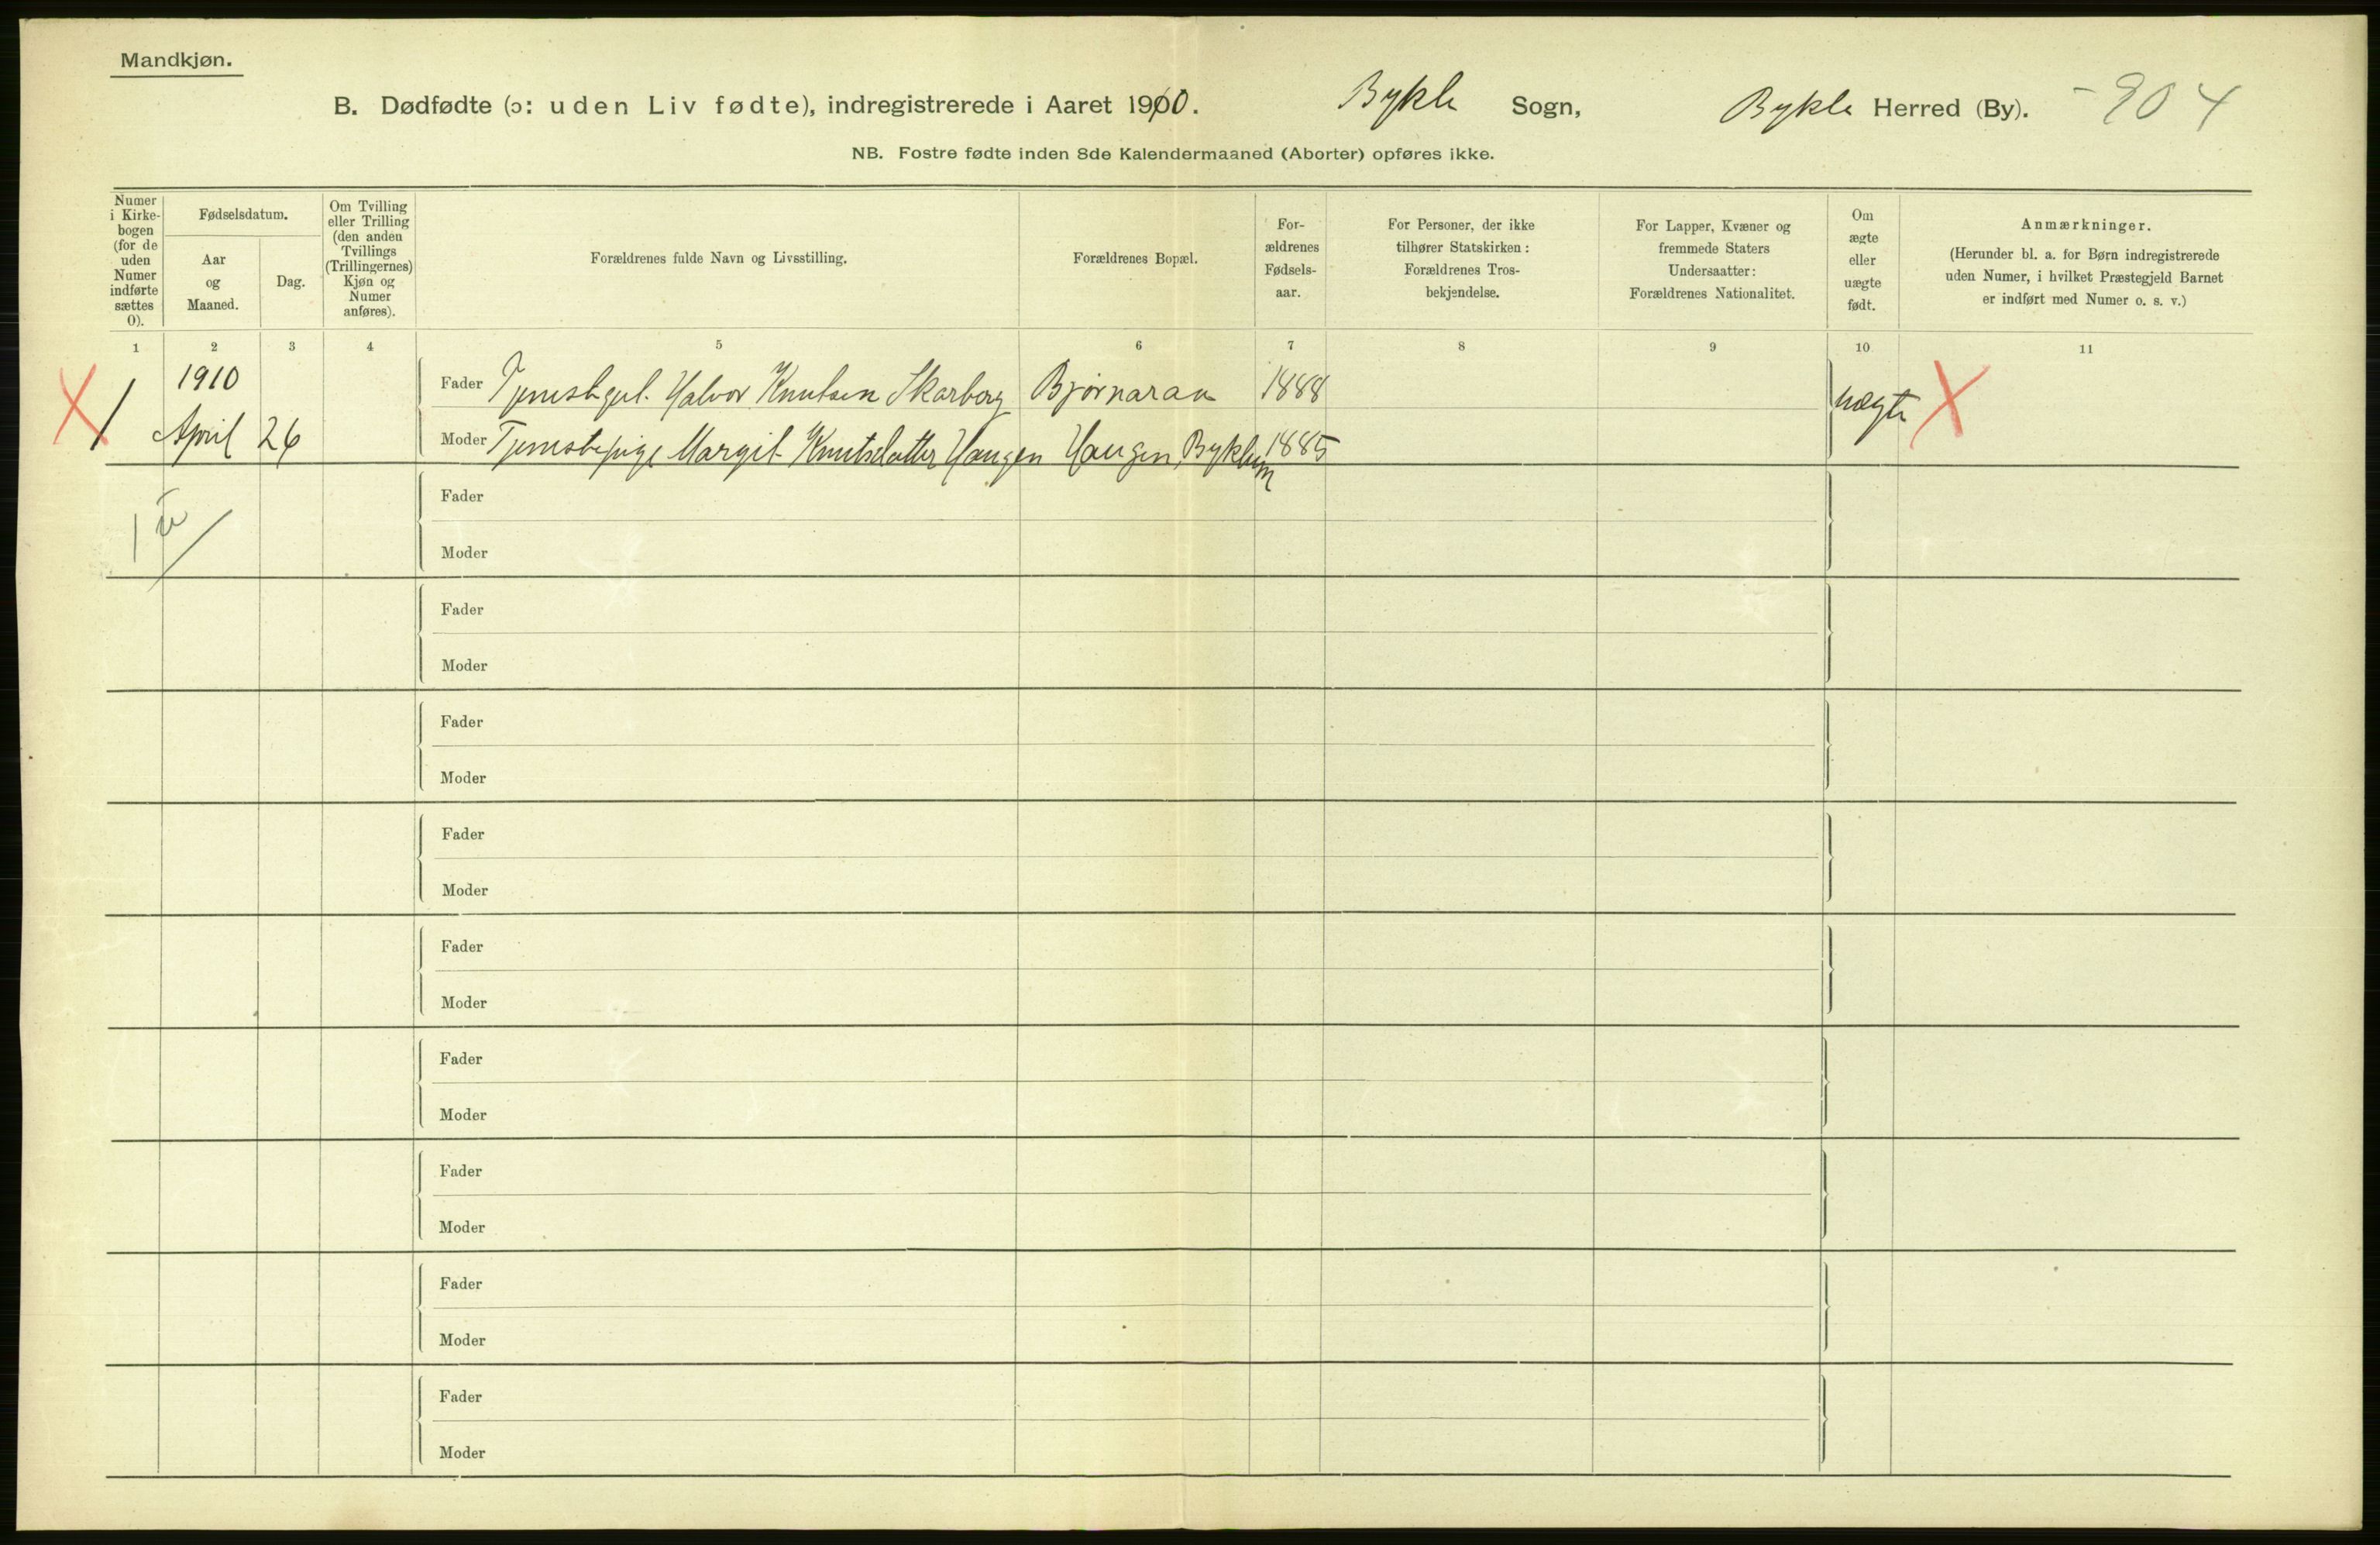 Mandkjøn.
B. Dødfødte (ɔ: uden Liv fødte), indregistrerede i Aaret 1910. Bykle Sogn, Bykle Herred (By). - 904
NB. Fostre fødte inden 8de Kalendermaaned (Aborter) opføres ikke.
Numer i Kirkebogen (for de uden Numer indførte sættes 0).
Fødselsdatum.
Aar og Maaned.
Dag.
Om Tvilling eller Trilling (den anden Tvillings (Trillingernes) Kjøn og Numer anføres).
Forældrenes fulde Navn og Livsstilling.
Forældrenes Bopæl.
For-ældrenes Fødsels-aar.
For Personer, der ikke tilhører Statskirken: Forældrenes Tros-bekjendelse.
For Lapper, Kvæner og fremmede Staters Undersaatter: Forældrenes Nationalitet.
Om ægte eller uægte født.
Anmærkninger.
(Herunder bl. a. for Børn indregistrerede uden Numer, i hvilket Præstegjeld Barnet er indført med Numer o. s. v.)
1 2 3 4 5 6 7 8 9 10 11
1910
Fader Tjenestgut. Halvor Knutsen Skarberg Bjørnaraa 1888
uægte
1 April 26 Moder Tjenestepige Margit Knutsdatter Haugen Haugen, Byklum 1885
Fader
1
Moder
Fader
Moder
Fader
Moder
Fader
Moder
Fader
Moder
Fader
Moder
Fader
Moder
Fader
Moder
Fader
Moder